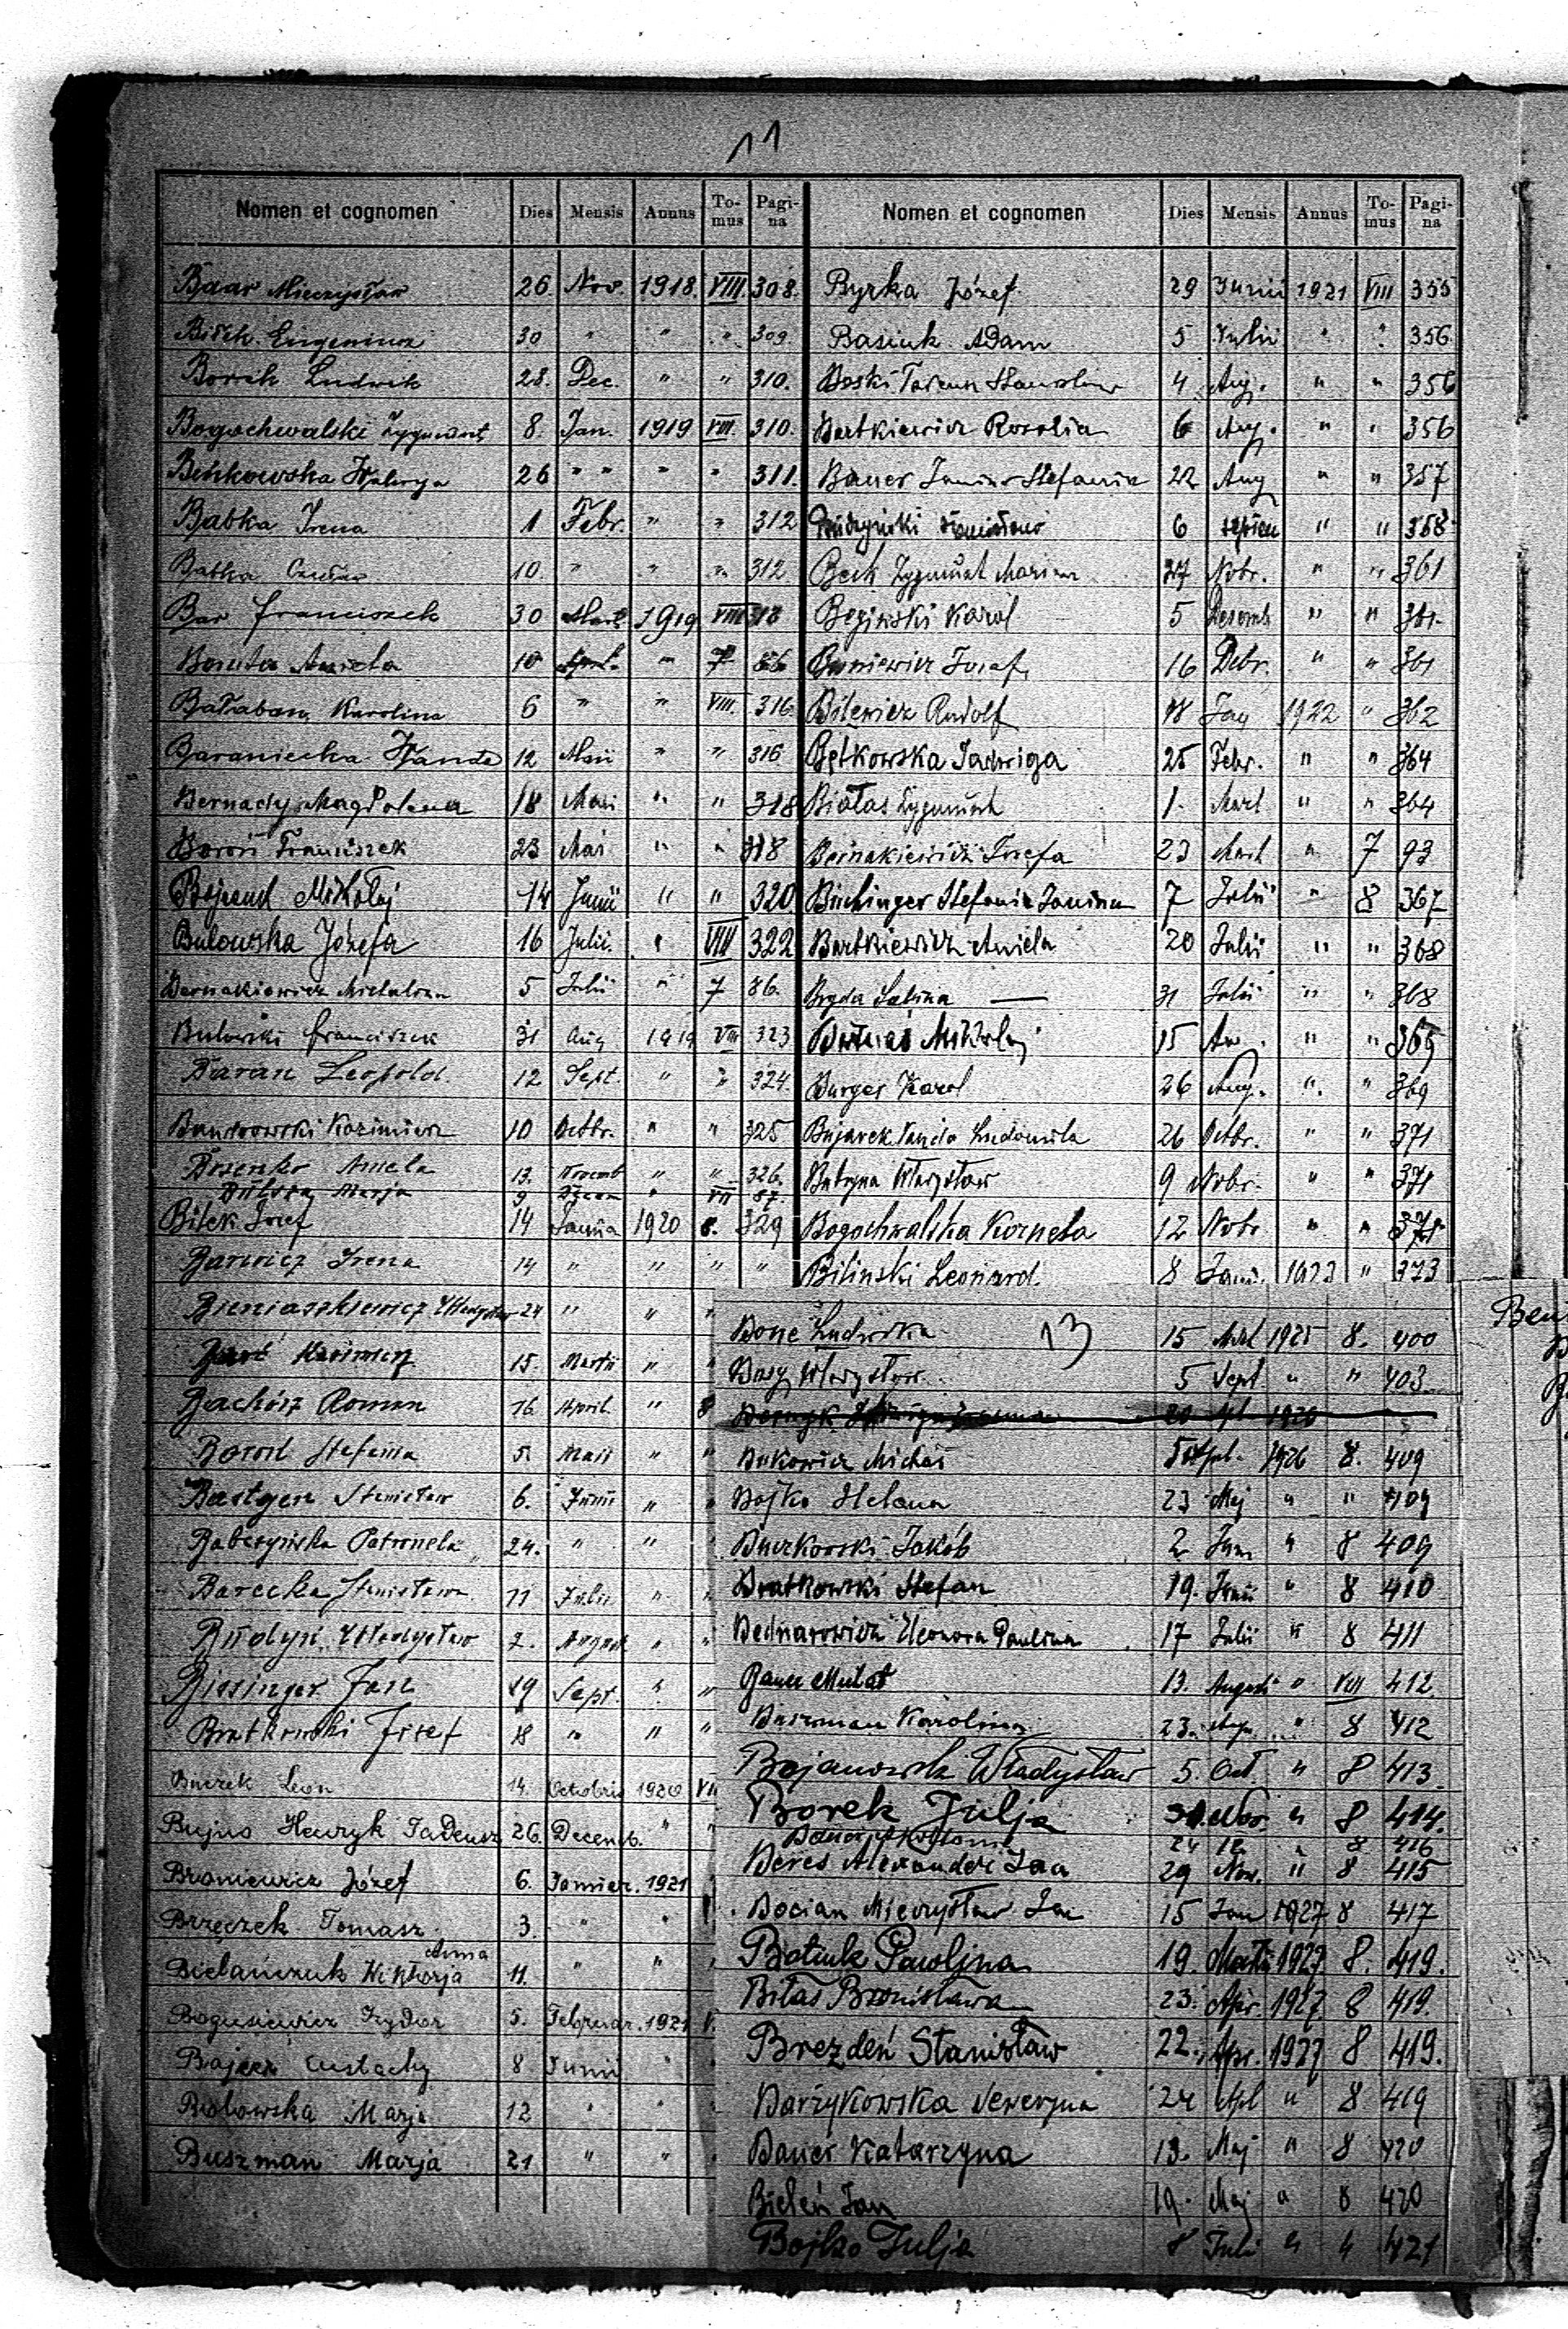 11
Nomen et cognomen Dies Mensis Annus To-mus Pagi-na
Baar Mieczysław 26 Nov. 1918. VIII. 308.
Eugeniusz 30 " " " 309
Ludwik 28. Dec. " " 310.
Bogochwalski Zygmunt 8. Jan. 1919 VIII. 310.
Bińkowska Walerya 26 " " " " 311.
Babka Irena 1 Febr. " " 312
Babka 10 " " " 312
Bar Franciszek 30 Mart. 1919 VIII
Boruta Aniela 10 April. " 7 86
Bałaban Karolina 6 " " VIII. 316.
Baraniecka Wanda 12 Maii " " 316
Bernady Magdolena 18 Maii " " 318
Boroń Franciszek 23 Mai " " 318
Mikołaj 14 Junii " " 320
Bulowska Józefa 16 Julii. " VIII 322
Bernakiewicz Michalina 5 Julii " 7 86.
Bulowski Franciszek 31 Aug 1919 VIII 323
Baran Leopold. 12 Sept. " " 324.
Kazimierz 10 Octbr. " " 325
Aniela 13. Novemb " " 326.
Marja 9 " VII 87
Bilek Józef 14 1920 8. 329
Barwicz Irena 14 " " " "
Bieniaszkiewicz Władysław 24 " " "
Kazimierz 15. Martii " "
Bachórz Roman 16 April. " 8
Stefania 5. Maii " "
Bastgen Stanisław 6. Junii " "
Petronela 24. " " "
Barecka Stanisława 11 Julii " "
Budyń Władysław 2. August " "
Jan 19 Sept. " "
Bratkowski Józef 18 " " "
Buczek Leon 14. Octobris 1920 VII
Bujno Henryk Tadeusz 26. Decemb. " "
Broniewicz Józef 6. Januar. 1921
Brzęczek Tomasz 3. " "
Anna
Bielańczuk Wiktorja 11. " "
Bogusiewicz Izydor 5. Februar. 1921 V.
Bajcer Eustachy 8 Junii "
Marja 12 " "
Buszman Marja 21 " "
Nomen et cognomen Dies Mensis Annus To-mus Pagi-na
Byrka Józef 29 Junii 1921 VIII 355
Basiuk Adam 5 Julii " " 356
4 Aug. " " 356
Bartkiewicz Rozalia 6 Aug. " " 356
Bauer Janina Stefania 22 Aug " " 357
6 " " 358
Beck Zygmunt Marian 27 Nobr. " " 361
Begiński Karol 5 Decemb " " 361
Józef 16 Dcbr. " " 361
Bilewicz Rudolf 18 Jan 1922 " 362
Bętkowska Jadwiga 25 Febr. " " 364
Białas Zygmunt 1. Mart " " 364
Bernakiewicz Józefa 23 Mart " 7 93
Büchinger Stefania Janina 7 Julii " 8 367
Bartkiewicz Aniela 20 Julii " " 368
Bryda Sabina — 31 Julii " " 368
Mikołaj 15 " " 369
Burger Karol 26 Aug. " " 369
Bujarek Wanda Ludomiła 26 Octbr. " " 371
Butryna Władysław 9 Nobr. " " 371
Bogochwalska Kornela 12 Nobr " "
Biliński Leonard. 8 Jan. 1923 " 373
13
Ludwika 15 Mart 1925 8. 400
Busz Władysław 5 Sept " " 403
20 Apl 1926
Bukowicz Michał 5 Apl. 1926 8. 409
Bojko Helena 23 Maj " " 409
Buczkowski Jakób 2 Jun " 8 409
Bratkowski Stefan 19. Junii " 8 410
Bednarowicz Eleonora Paulina 17 Julii " 8 411
Bauer 13. Augusti " VIII 412.
Buszman Karolina 23. Aug. " 8 412
Bojanowski Władysław 5. Oct " 8 413.
Borek Julja Nov. " 8 414.
24 12 " 8 416
Beres Alexander Jan 29 Nov. " 8 415
Bocian Mieczysław Jan 15 Jan 1927 8 417
Paulina 19. Martii 1927 8. 419.
Biłas Bronisława 23. Apr. 1927. 8 419.
Brezdeń Stanisław 22. Apr. 1927 8 419.
Barzykowska Seweryna 24 Apl " 8 419
Bauer Katarzyna 13. Maj " 8 420
Bieleń Jan 19. Maj " 8 420
Bojko Julja 8 Juli " " 421